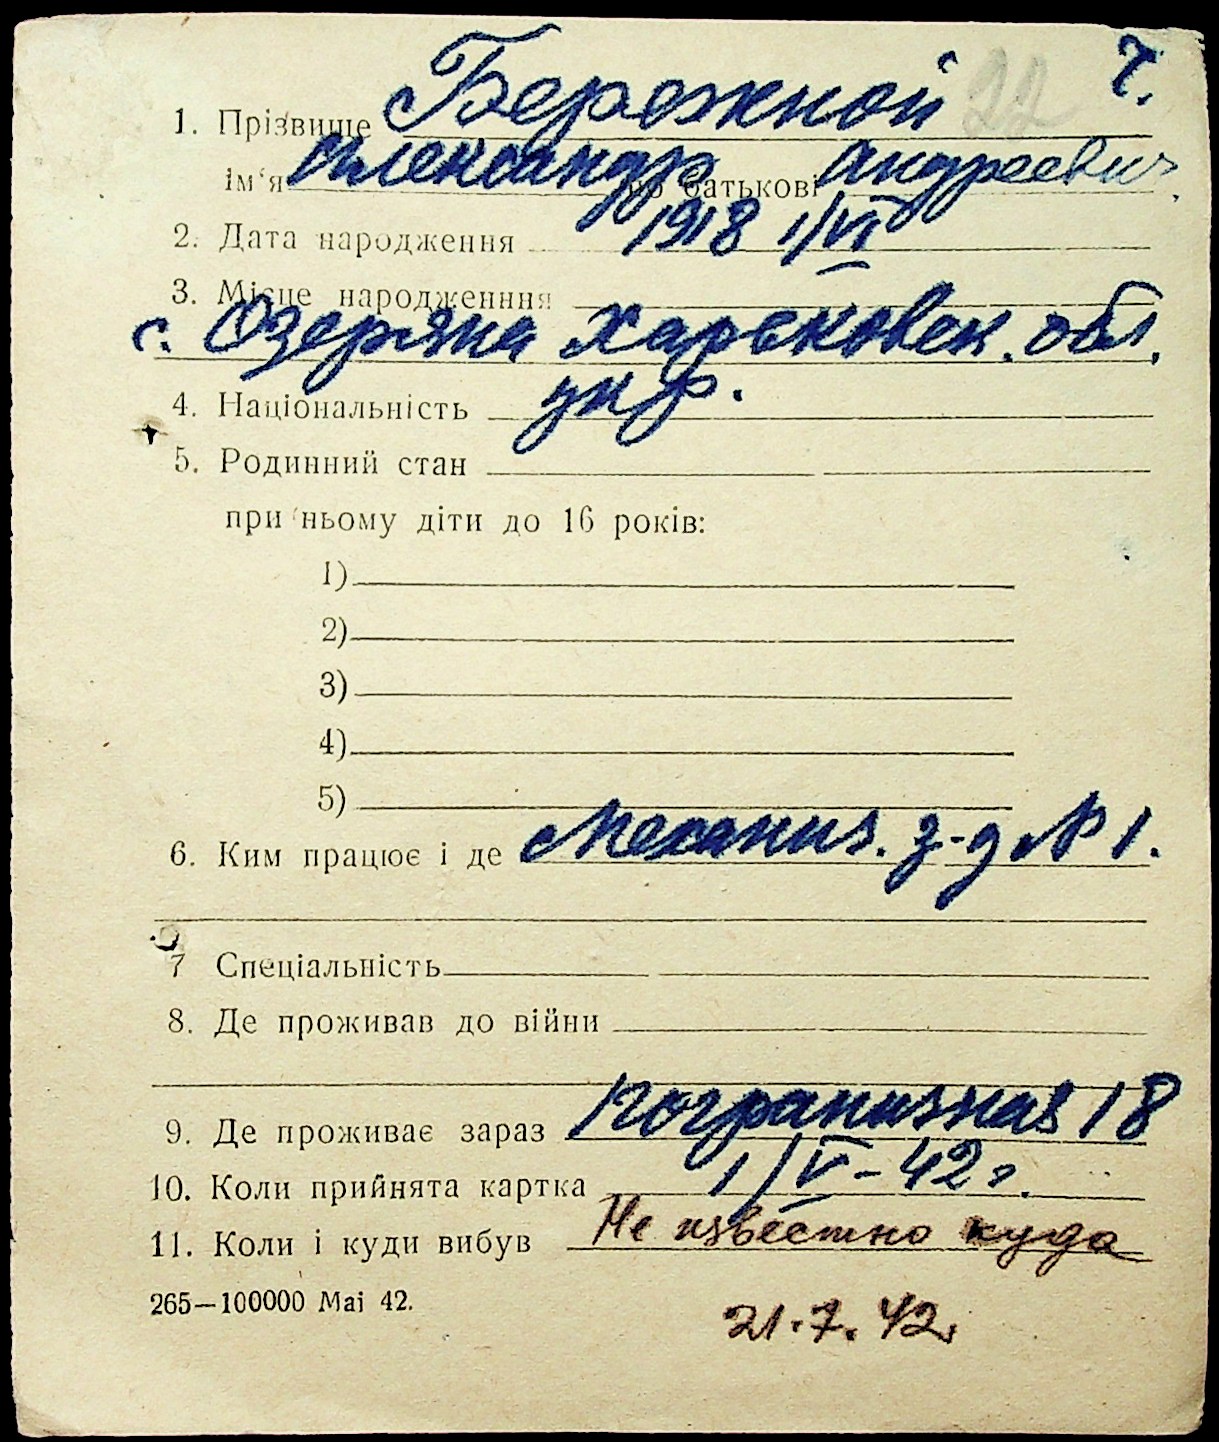 22 ч.
1. Прізвище Бережной
ім‘я Александр по батькові Андреевич
2. Дата народження 1918 1/VI
3. Місце народженння
с. Озеряна Харьковск. обл.
4. Національність укр.
5. Родинний стан
при ньому діти до 16 років:
1)
2)
3)
4)
5)
6. Ким працює і де Механич. з-д № 1.
7 Спеціальність
8. Де проживав до війни
9. Де проживає зараз Пограничная 18
10. Коли прийнята картка 1/V-42 г.
11. Коли і куди вибув Не известно куда
265—100000 Mai 42.
21.7.42.